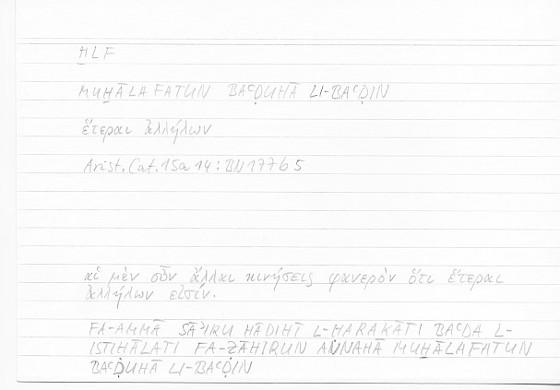 ḪLF
MUḪĀLAFATUN BAʿḌUHĀ LI-BAʿḌIN
ἕτεραι ἀλλήλων
Arist. Cat. 15a 14 : BN 177b5
αἱ μὲν οὖν ἄλλαι κινήσεις φανερὸν ὅτι ἕτεραι
ἀλλήλων εἰσίν.
FA-AMMĀ SĀʾIRU HĀḎIHĪ L-ḤARAKĀTI BAʿDA L-
ISTIḤĀLATI FA-ẒĀHIRUN ANNAHĀ MUḪĀLAFATUN
BAʿḌUHĀ LI-BAʿḌIN